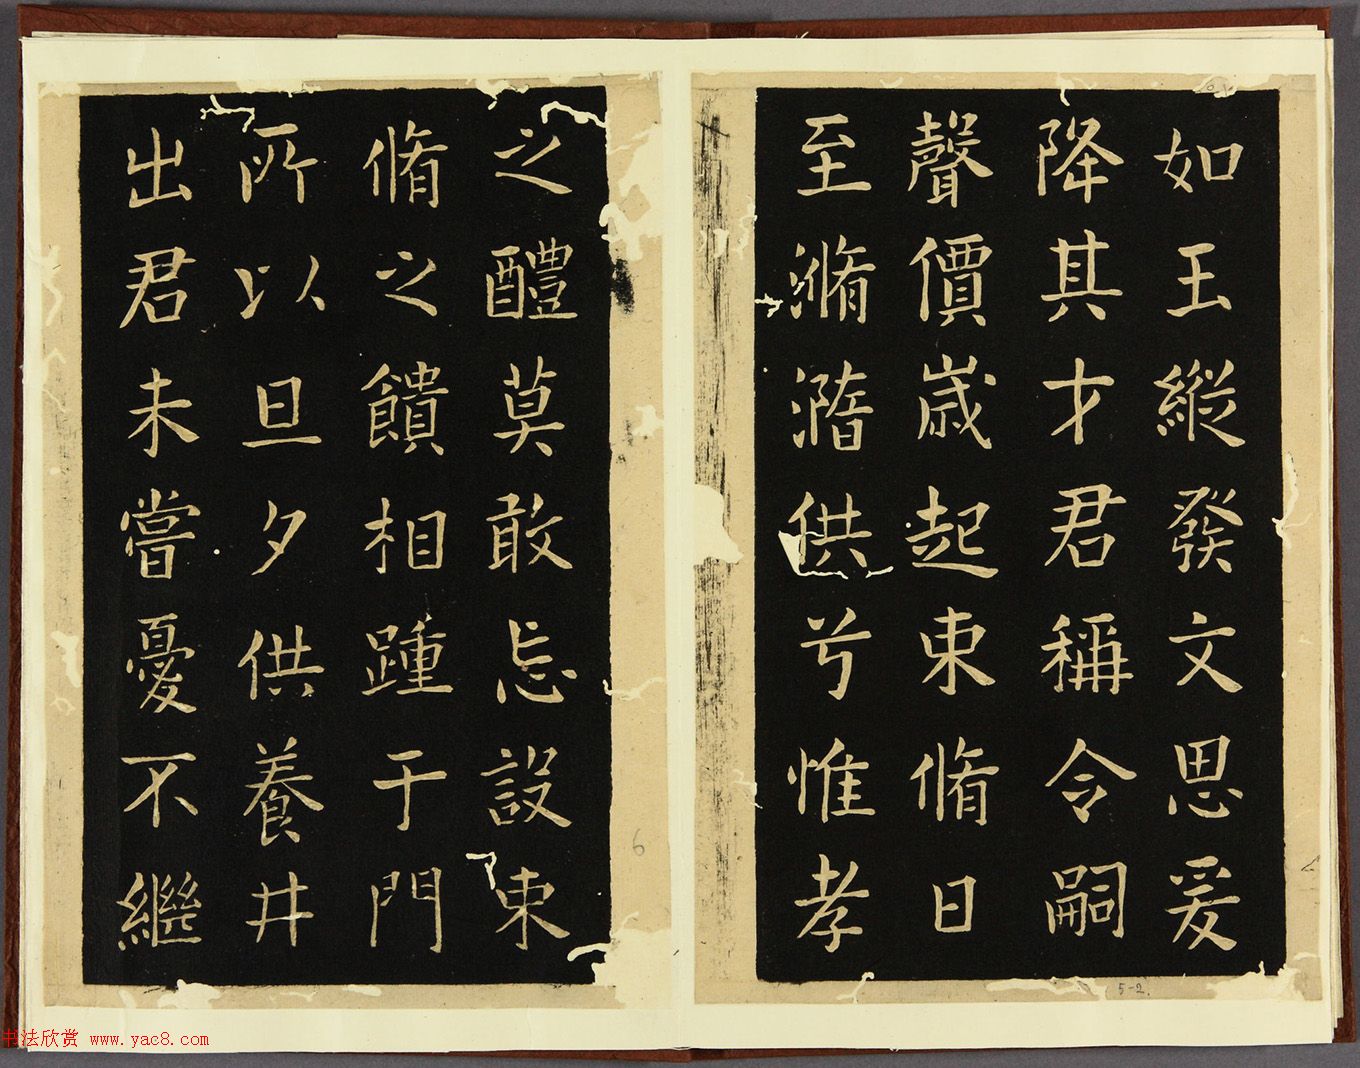 如王縱發文思爰
降其才君稱令嗣
聲價歲起東脩日
至滫瀡供兮惟孝
5-2.
之醴莫敢忘設東
脩之饋相踵于門
所以旦夕供養井
出君未嘗憂不繼
6
书法欣赏 www.yac8.com